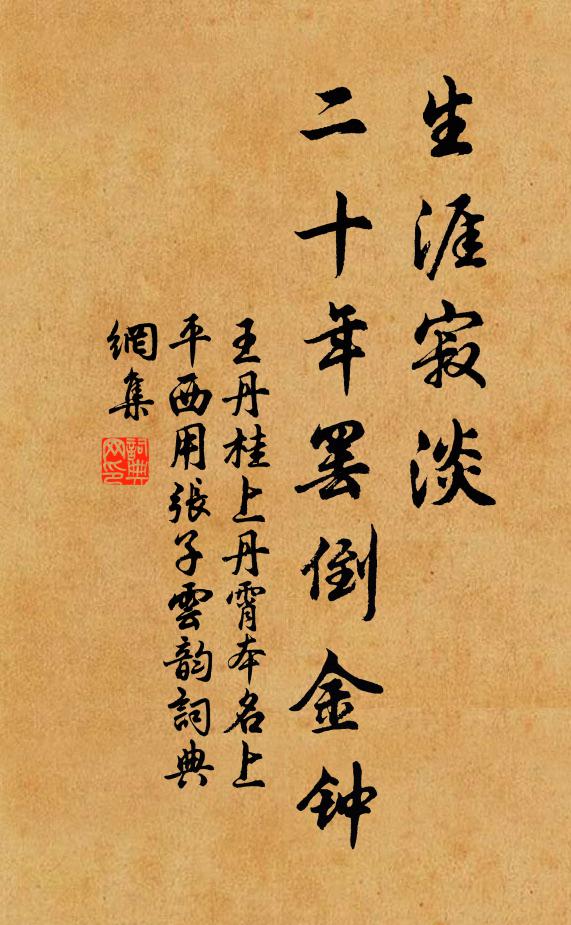 生涯寂淡
二十年罢倒金钟
王丹桂上丹霄本名上
平西用張子雲韵詞典
網集
詞典网印